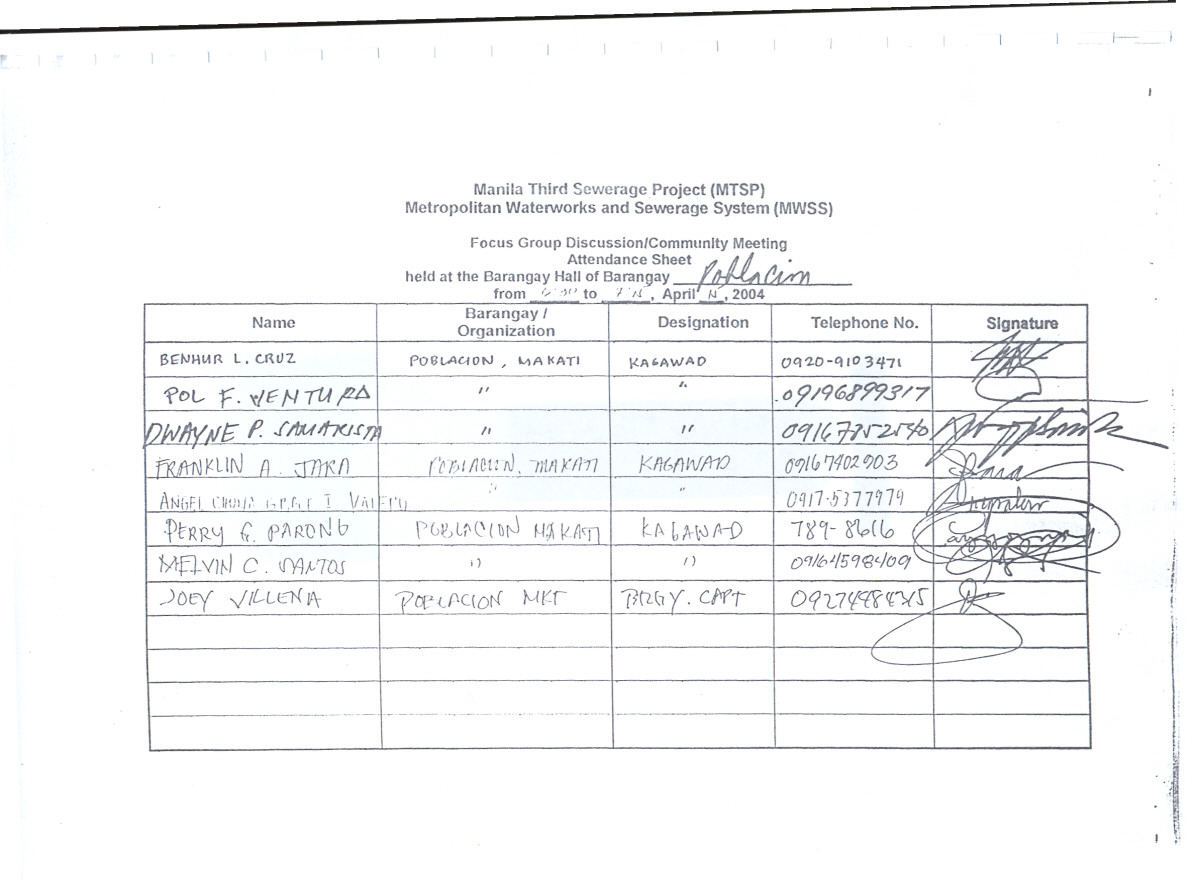 Manila Third Sewerage Project (MTSP)
Metropolitan Waterworks and Sewerage System (MWSS)
Focus Group Discussion/Community Meeting
Attendance Sheet
held at the Barangay Hall of Barangay Poblacion
from to , April , 2004
Name Barangay / Organization Designation Telephone No. Signature
BENHUR L. CRUZ POBLACION, MAKATI KAGAWAD 0920-9103471
POL F. VENTURA " " 09196899317
DWAYNE P. SAMARISTA " " 09167352540
FRANKLIN A. JARA POBLACION, MAKATI KAGAWAD 09167402903
ANGEL I VALERO " " 0917-5377979
PERRY G. PARONG POBLACION MAKATI KAGAWAD 789-8616
MELVIN C. SANTOS " " 09164598409
JOEY VILLENA POBLACION MKT BRGY. CAPT